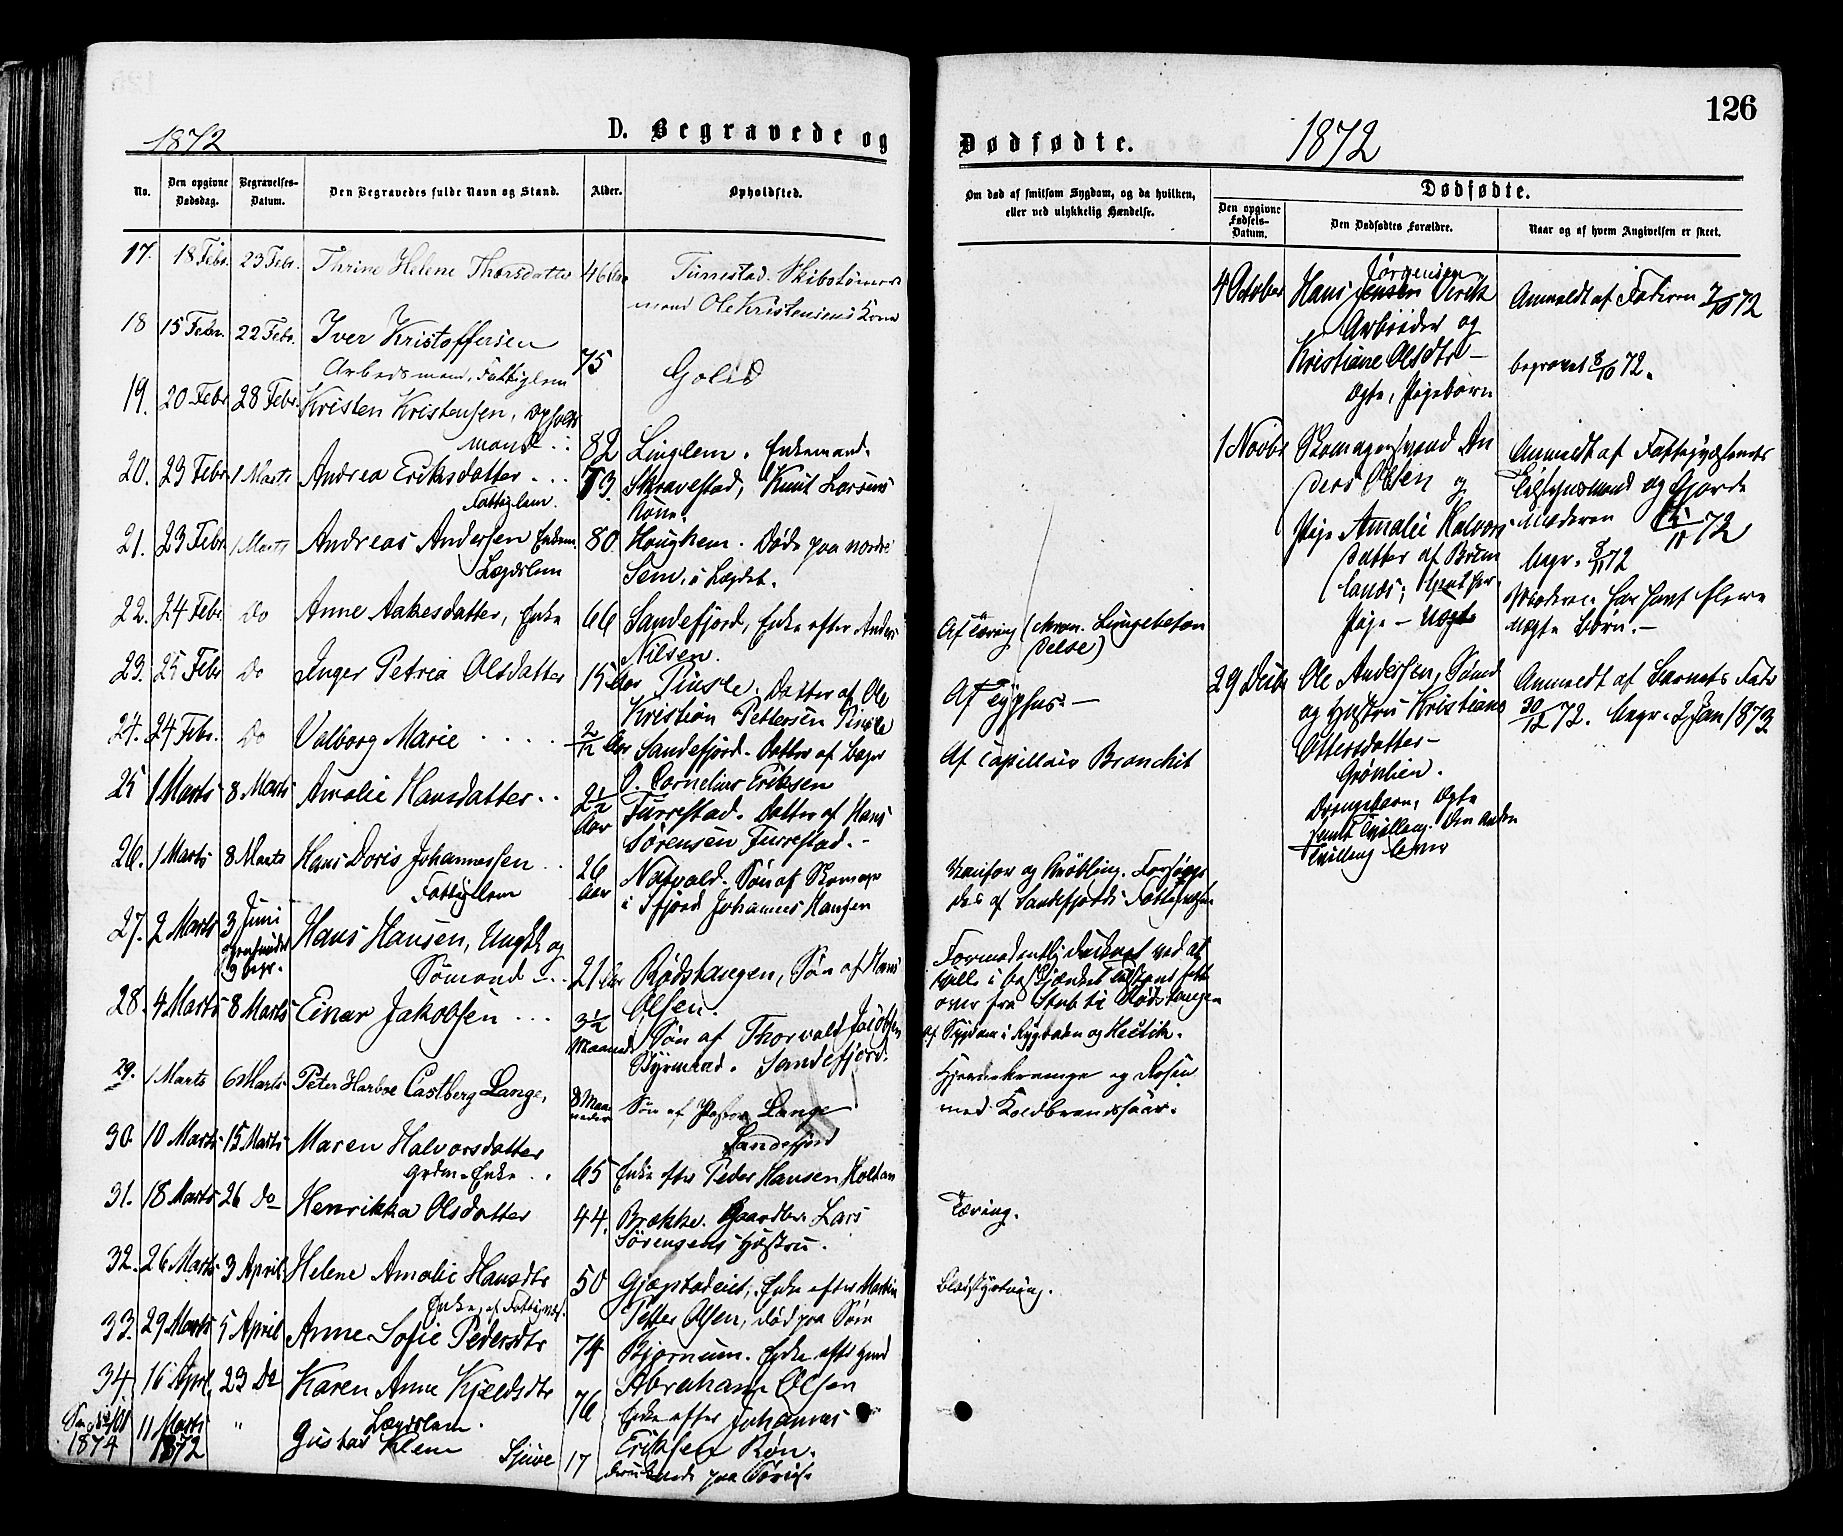 1872
D. Begravede og
No.
Den opgivne Dødsdag.
Begravelses-Datum.
Den Begravedes fulde Navn og Stand.
Alder.
Opholdsted.
17. 18 Febr. 23 Febr. Thrine Helene Thorsdatter 46 Skibstømer
mand Ole Kristensens Kone
18 15 Febr. 22 Febr. Iver Kristoffersen
Arbedsmand, Fattiglem 75
19. 20 Febr 28 Febr. Kristen Kristensen,
mand 82 Enkemand.
20. 23 Febr 1 Marts Andrea Eriksdatter 73. Skravestad, Knut Larsens
Fattiglem. Kone.
21. 23 Febr 1 Marts Andreas Andersen Enkem. 80. Haughem. Døde paa nordre
Lægdslem Sem, i Lægdet.
22. 24 Febr Do Anne Aakesdatter, Enke 66 Sandefjord, Enke efter Anders
Nilsen.
23. 25 Febr Do Inger Petrea Olsdatter 15 Aar Pinsle. Datter af Ole
Kristian Pettersen Pinsle
24. 24 Febr. Do Valborg Marie 2/12 Aar Sandefjord. Datter af
O. Cornelius Eriksen
25 1 Marts 8 Marts Amalie Hansdatter 2½ Aar Furrestad. Datter af Hans
Sørensen Furrestad.
26. 1 Marts 8 Marts Hans Doris Johannessen 26 Aar Søn af Skomager
Fattiglem i Sfjord Johannes Hansen
27. 2 Marts 3 Juni Hans Hansen, Ungk og
Sømand 21 Aar Rødstangen, Søn af Hans
Olsen.
28. 4 Marts 8 Marts Einar Jakobsen 3½ Maaned Søn af Thorvald Jacobsen
Styrmand. Sandefjord.
29. 1 Marts 6 Marts Peter Harboe Castberg Lange, 8 Maaneder Søn af Pastor Lange
Sandefjord
30. 10 Marts 15 Marts Maren Halvorsdatter
Grdm. Enke 65 Enke efter Peder Hansen Holtan
31. 18 Marts 26 Do Henrikka Olsdatter 44. Brække. Gaardbr. Lars
Sørensens Hustru.
32. 26 Marts 3 April Helene Amalie Hansdtr 50 Enke efter Martin
Petter Olsen, død paa Sem
33. 29 Marts 5 April Anne Sofie Pedersdtr 74 Bjørnum. Enke efter
Abraham Olsen
34. 16 April 23 Do Karen Anne Kjeldsdtr 76 Enke efter Johannes
Lægdslem. Eriksen Røn.
1874 11 Marts 1872 " Gustav Klem 17 paa
Dødfødte.
1872
126
Om død af smitsom Sygdom, og da hvilken,
eller ved ulykkelig Hændelse.
Dødfødte.
Den opgivne Fødsels-Datum.
Den Dødfødtes Forældre.
Naar og af hvem Angivelsen er skeet.
4 October Hans Jørgensen Virik Anmeldt af Faderen 7/10 72
Arbeider og
Kristiane Olsdtr begravet 8/10 72.
Ægte, Pigebørn
1 Novbr Skomagersvend An
ders Olsen og Anmeldt af Fattigvæsenets
Tilsynsmand og Gjorde
Pige Amalie Halvors Moderen
datter af
Begr. 8/11 72
Pige - Uægte Moderen har havt flere
uægte Børn.
Af Tæring (chron. Lungebeten
delse)
Af Typhus.
Af capillair Bronchit
29 Decbr Ole Andersen, Sømd Anmeldt af Barnets Fader
og Hustru Kristiane 30/12 72. Begr. 2 Jan 1873
Ottersdatter
Grønlien.
Drengebarn, Ægte
samt Tvilling. Den anden
Tvilling lever
Forsørge
des af Sandefjords Fattigvæsen
Formodentlig druknet ved at
ville i beskjænket Tilstand sætte
over fra Stub til Rødstangen
Af Sygdom i Rygraden og Hectik.
Hjernekrampe og Rosen
med Koldbrandssaar.
Tæring.
Blodstyrtning.